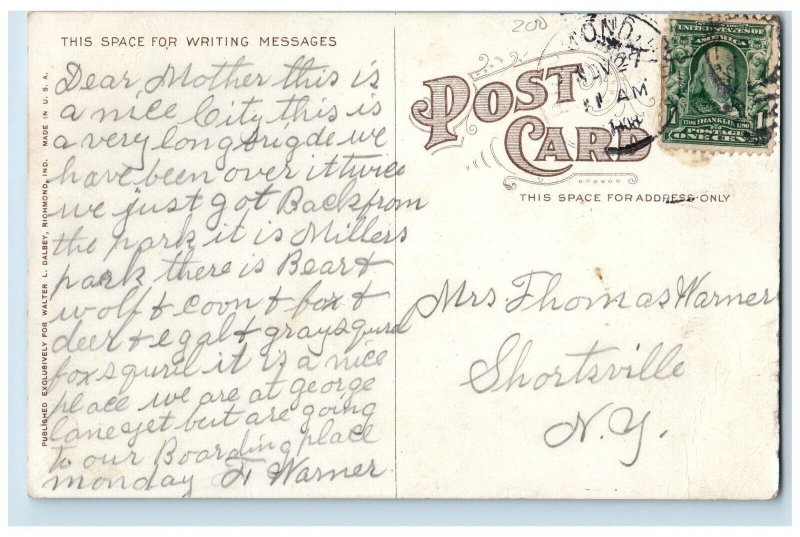 THIS SPACE FOR WRITING MESSAGES
Dear Mother this is
a nice City this is
a very long brigde we
have been over it twice
we just got Back from
the park it is Millers
park there is Bear &
wolf & coon & fox &
deer & egal & gray squril
fox squril it is a nice
place we are at george
lane yet but are going
to our Boarding place
monday F. Warner
PUBLISHED EXCLUSIVELY FOR WALTER L. DALBEY, RICHMOND, IND. MADE IN U.S.A.
200
POST
CARD
THIS SPACE FOR ADDRESS ONLY
MOND,
NOV 21
AM
UNITED STATES OF
AMERICA
1706 FRANKLIN 1790
1 POSTAGE 1
ONE CENT
Mrs Thomas Warner
Shortsville
N.Y.